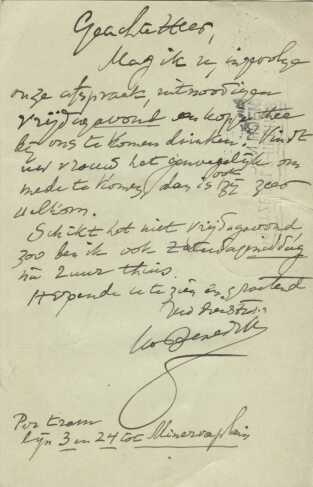 Geachte Heer,
Mag ik U, ingevolge
onze afspraak, uitnoodigen
Vrijdagavond een kop thee
bij ons te komen drinken. Vindt
uw vrouw het genoegelijk om
mede te komen, dan is zij ook zeer
welkom.
Schikt het niet Vrijdagavond
zoo ben ik ook Zaterdagmiddag
na 2 uur thuis.
Hopende U te zien en groetend
Per tram
lijn 3 en 24 tot Minervaplein